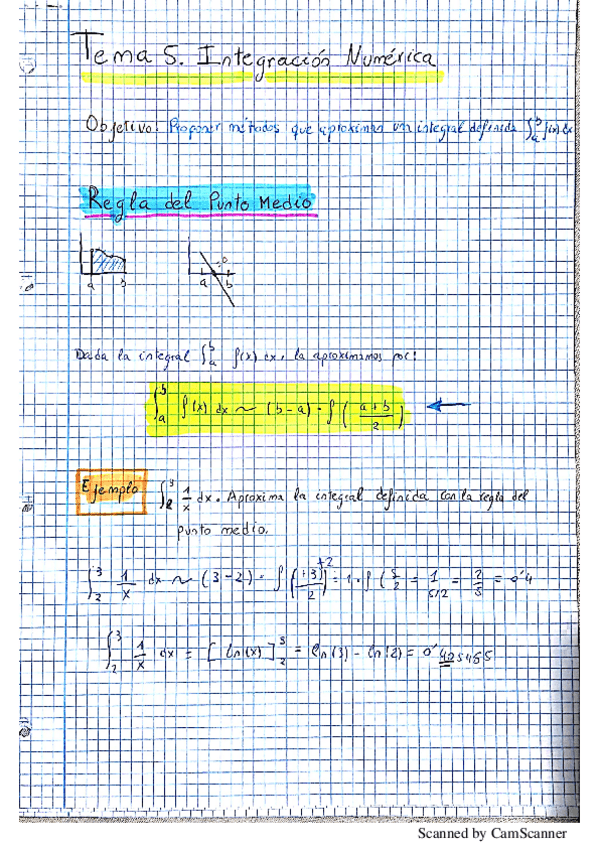 Tema 5. Integración Numérica
Objetivo: Proponer métodos que aproximan un integral definida ∫_a^b f(x) dx
Regla del Punto Medio
a b a b
Dada la integral ∫_a^b f(x) dx, la aproximamos por:
∫_a^b f(x) dx ~ (b-a) · f((a+b)/2)
Ejemplo ∫_2^3 1/x dx. Aproxima la integral definida con la regla del
punto medio.
∫_2^3 1/x dx ~ (3-2) · f((+3)+2/2) = 1 · f(5/2 = 1/5/2 = 2/5 = 0'4
∫_2^3 1/x dx = [ln(x)]_2^3 = ln(3) - ln(2) = 0'405465
Scanned by CamScanner